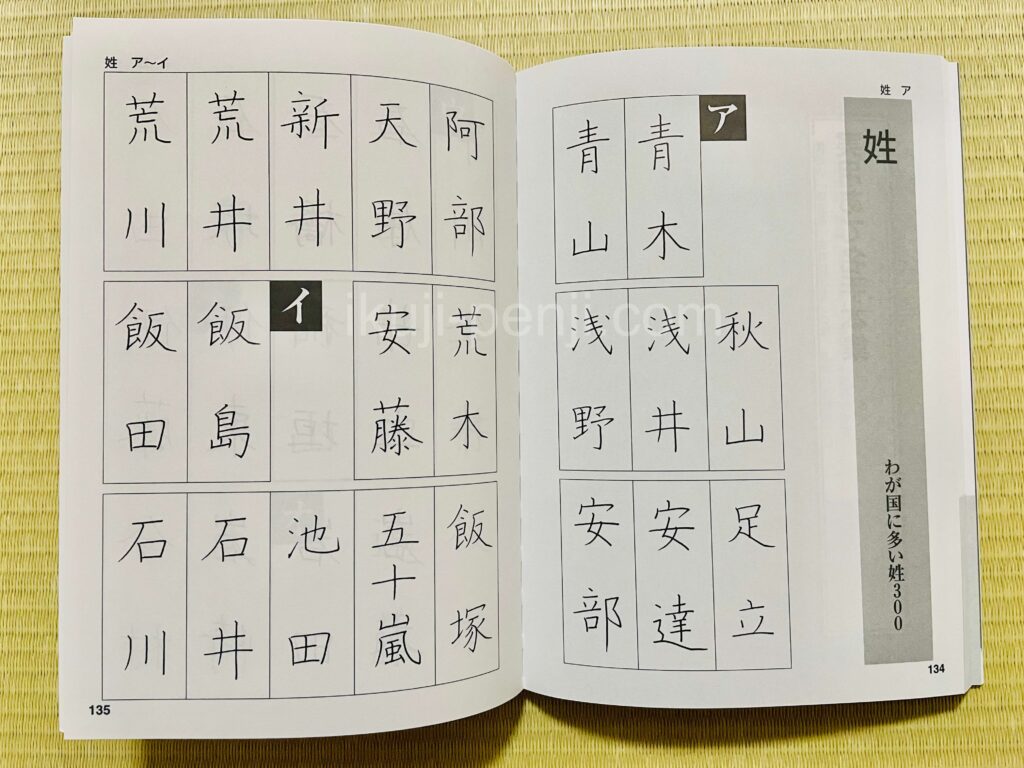 姓 ア
姓
わが国に多い姓300
ア
青木
青山
秋山
浅井
浅野
足立
安達
安部
134
姓 ア～イ
阿部
天野
新井
荒井
荒川
荒木
安藤
イ
飯島
飯田
飯塚
五十嵐
池田
石井
石川
135
ikuji-penji.com